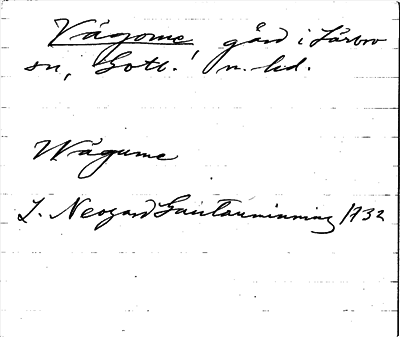 Vägome, gård i Lärbro
sn, Gotl. n. hd.
Wägume
L. Neogard Gautauminning 1732